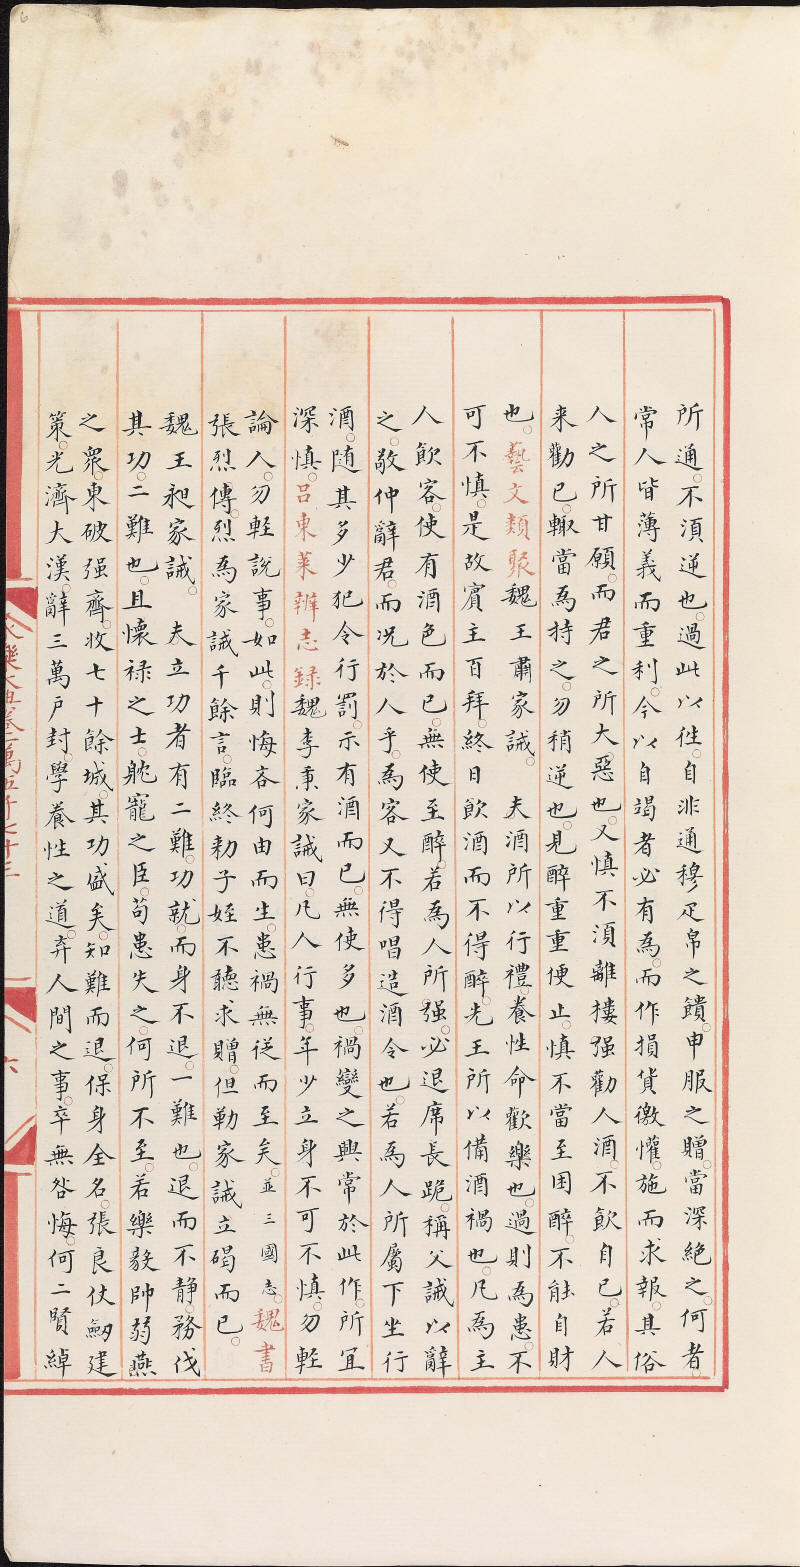 所通。不湏逆也。過此以徃。自非通穆疋帛之饋。申服之贈。當深絶之。何者。
常人皆薄義而重利。今以自竭者必有為。而作損貨徼懽。施而求報。其俗
人之所甘願。而君之所大惡也。又慎不湏離樓强勸人酒。不飲自已。若人
来勸已。輙當為持之。勿稍逆也。見醉重重便止。慎不當至困醉。不能自財
也。藝文類聚魏王肅家誡。夫酒所以行禮。養性命歡樂也。過則為患。不
可不慎。是故賓主百拜。終日飲酒而不得醉。先王所以備酒禍也。凡為主
人飲客。使有酒色而已。無使至醉。若為人所强。必退席長跪。稱父誡以辭
之。敬仲辭君。而况於人乎。為客又不得唱造酒令也。若為人所屬下坐行
酒。随其多少犯令行罰。示有酒而已。無使多也。禍變之興常於此作。所宜
深慎。吕東萊辨志録魏李秉家誡曰。凡人行事。年少立身不可不慎。勿輕
論人。勿輕說事。如此。則悔吝何由而生。患禍無従而至矣。並三國志。魏書
張烈傳。烈為家誡千餘言。臨終勑子姪不聽求贈。但勒家誡立碣而已。
魏王昶家誡。夫立功者有二難。功就。而身不退。一難也。退而不静。務伐
其功。二難也。且懷禄之士。躭寵之臣。苟患失之。何所不至。若樂毅帥弱燕
之衆。東破强齊。收七十餘城。其功盛矣。知難而退。保身全名。張良仗劒建
策。光濟大漢。辭三萬戶封。學養性之道。弃人間之事。卒無咎悔。何二賢綽
六
6